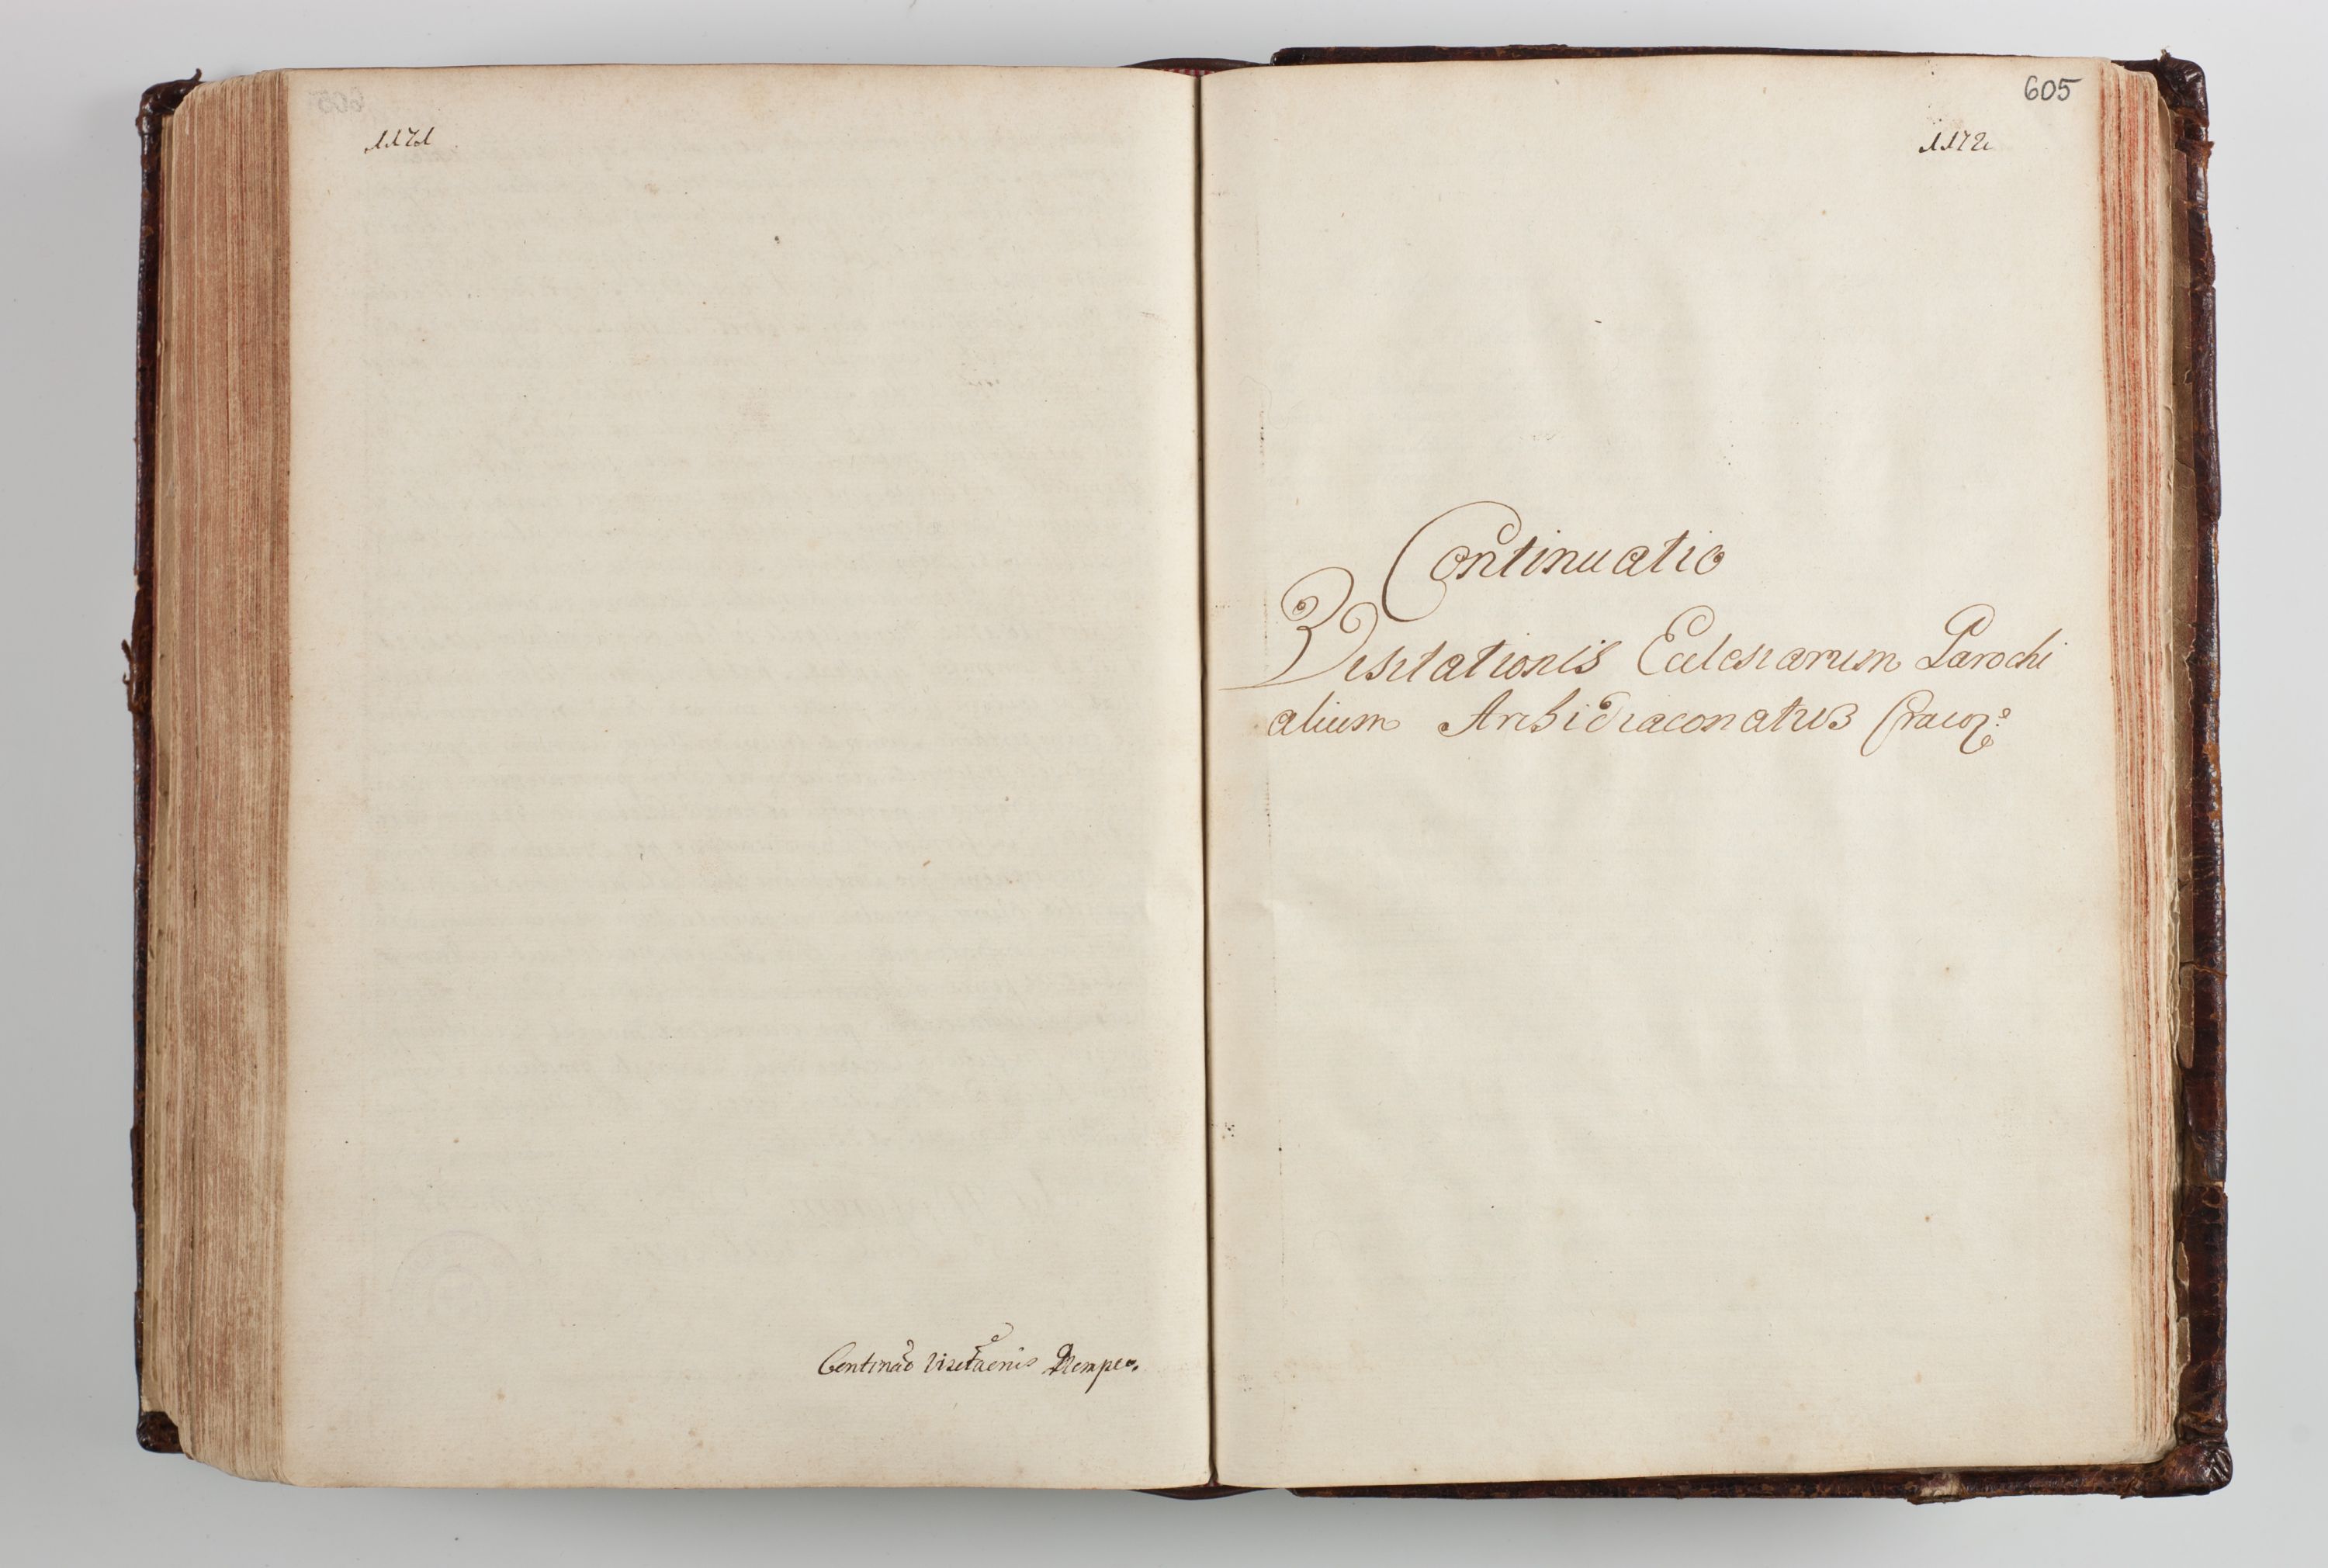 1171
Continão Visitãenis
605
1172
Continuatio
Visitationis Ecclesiarum Parochi
alium Archidiaconatus Cracoẽ